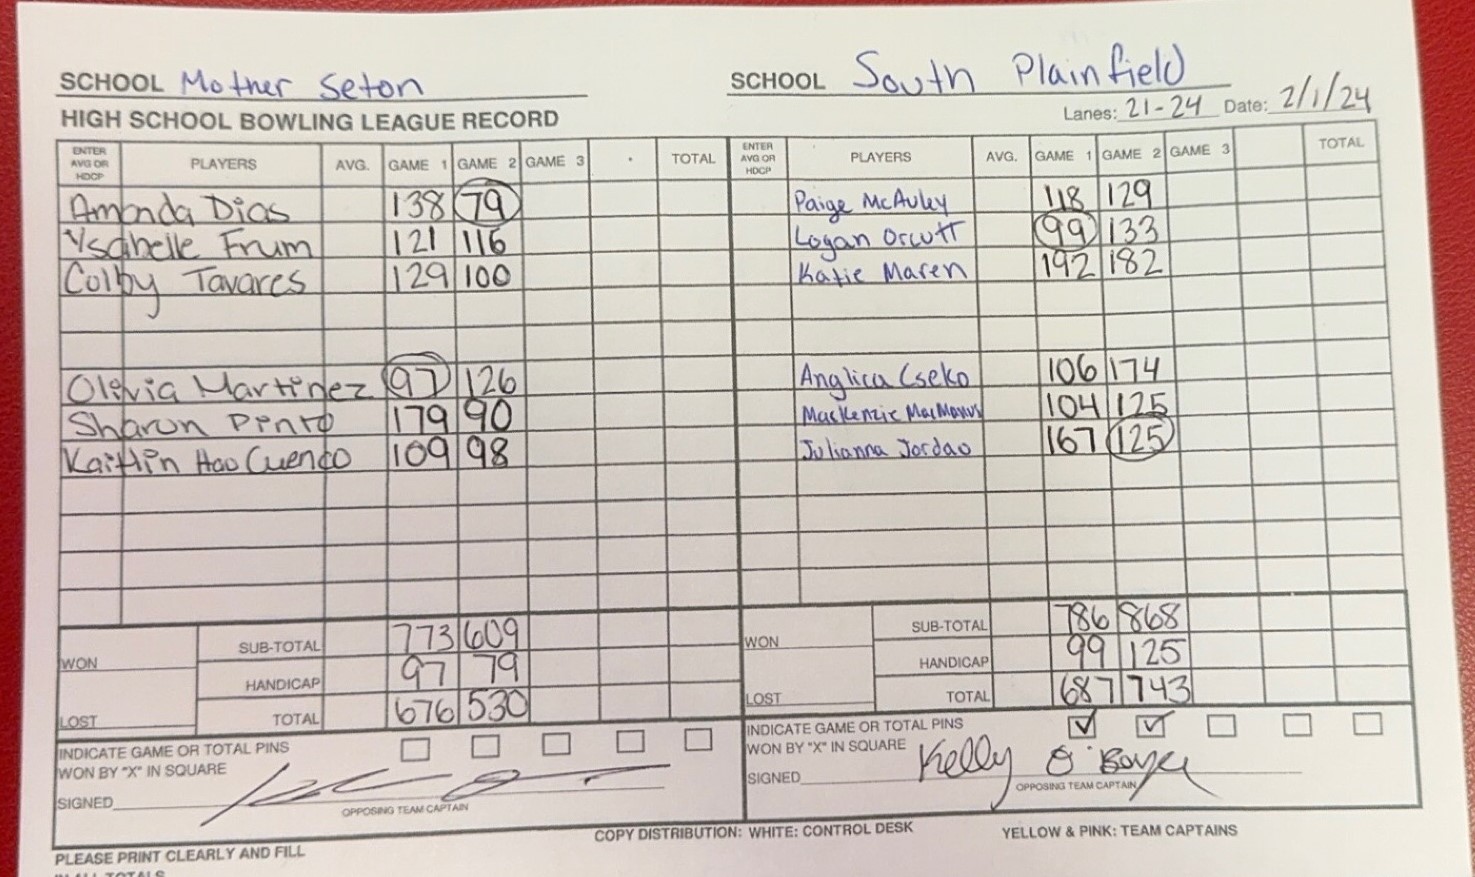 SCHOOL Mother Seton
SCHOOL South Plainfield
HIGH SCHOOL BOWLING LEAGUE RECORD
Lanes: 21-24 Date: 2/1/24
ENTER AVG OR HDCP PLAYERS AVG. GAME 1 GAME 2 GAME 3 TOTAL
ENTER AVG OR HDCP PLAYERS AVG. GAME 1 GAME 2 GAME 3 TOTAL
Amanda Dias 138 79
Ysabelle Frum 121 116
Colby Tavares 129 100
Olivia Martinez 97 126
Sharon Pinto 179 90
Kaitlin Hao Cuenco 109 98
Paige McAuley 118 129
Logan Orcutt 99 133
Katie Maren 192 182
Anglica Cseko 106 174
Mackenzie MacManus 104 125
Julianna Jordao 167 125
WON SUB-TOTAL 773 609
HANDICAP 97 79
LOST TOTAL 676 530
WON SUB-TOTAL 786 868
HANDICAP 99 125
LOST TOTAL 687 743
INDICATE GAME OR TOTAL PINS
WON BY "X" IN SQUARE
SIGNED
OPPOSING TEAM CAPTAIN
INDICATE GAME OR TOTAL PINS
WON BY "X" IN SQUARE
SIGNED Kelly O'Boyle
OPPOSING TEAM CAPTAIN
COPY DISTRIBUTION: WHITE: CONTROL DESK YELLOW & PINK: TEAM CAPTAINS
PLEASE PRINT CLEARLY AND FILL
IN ALL TOTALS